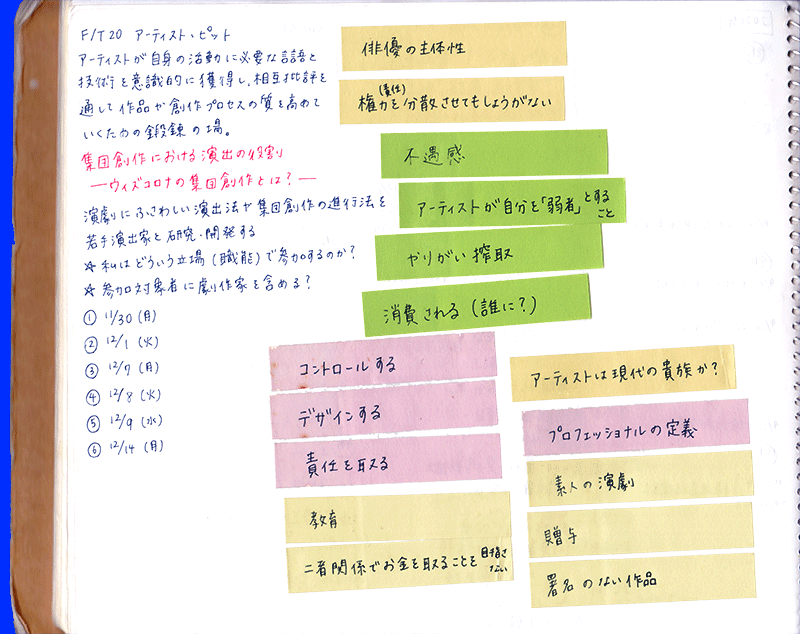 F/T20 アーティスト・ピット
アーティストが自身の活動に必要な言語と
技術を意識的に獲得し、相互批評を
通して作品や創作プロセスの質を高めて
いくための鍛錬の場。
集団創作における演出の役割
―ウィズコロナの集団創作とは?―
演劇にふさわしい演出法や集団創作の進行法を
若手演出家と研究・開発する
☆私はどういう立場(職能)で参加するのか?
☆参加対象者に劇作家を含める?
① 11/30(月)
② 12/1(火)
③ 12/7(月)
④ 12/8(火)
⑤ 12/9(水)
⑥ 12/14(月)
俳優の主体性
権力(責任)を分散させてもしょうがない
不遇感
アーティストが自分を「弱者」とすること
やりがい搾取
消費される(誰に?)
コントロールする
デザインする
責任を取る
教育
二者関係でお金を取ることを目指さない
アーティストは現代の貴族か?
プロフェッショナルの定義
素人の演劇
贈与
署名のない作品